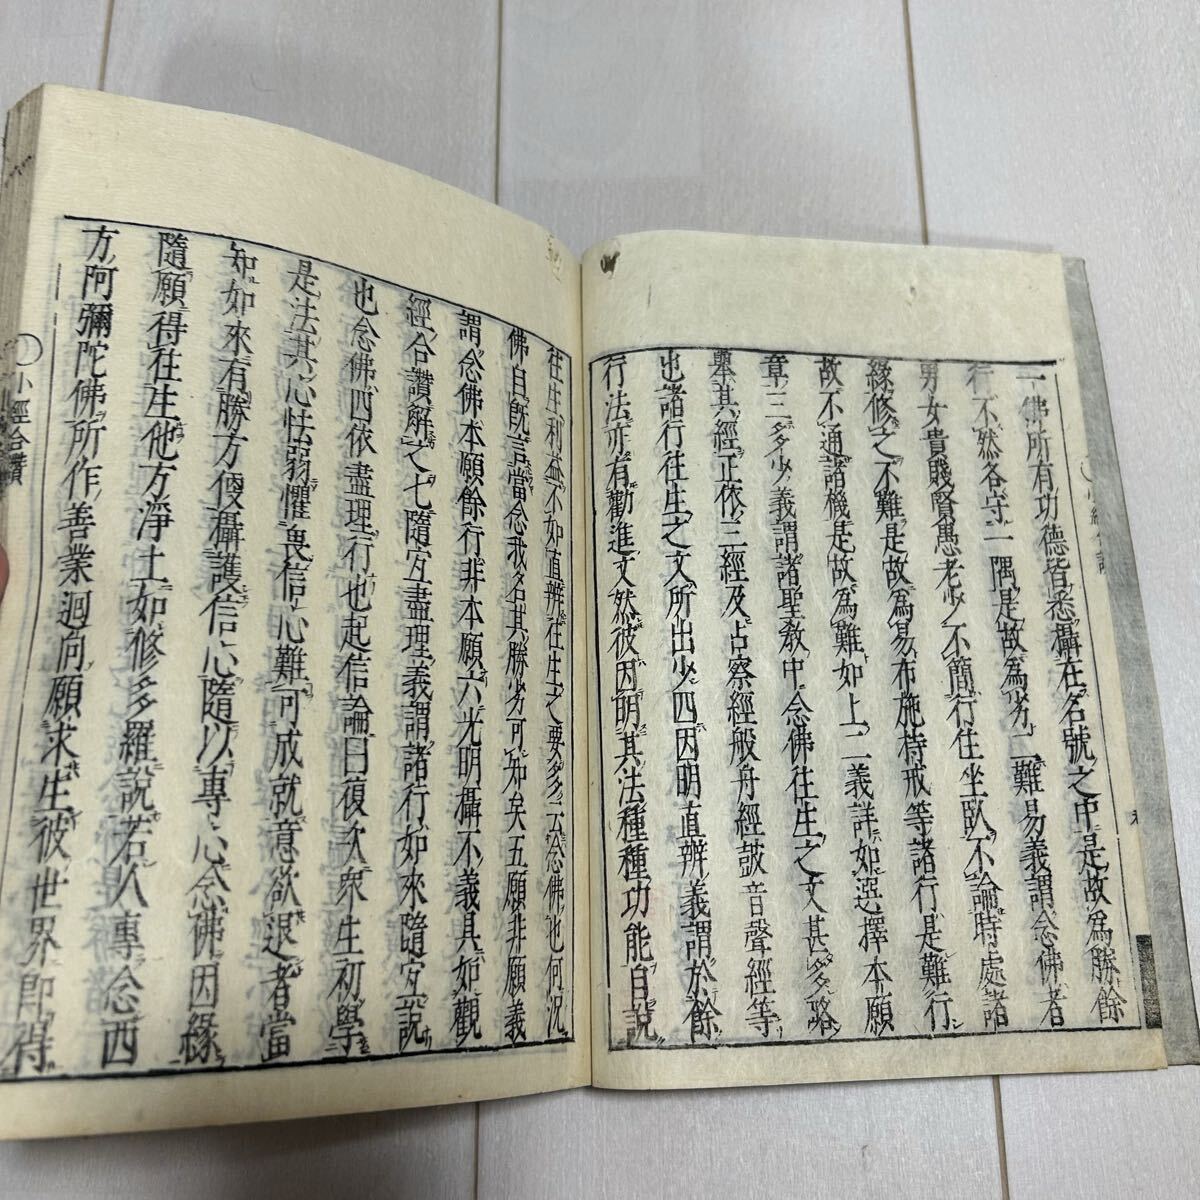 一佛所有功德皆悉攝在名號之中是故為勝餘
行不然各守一隅是故為劣二難易義謂念佛者
男女貴賤賢愚老少不簡行住坐臥不論時處諸
緣修之不難是故為易布施持戒等諸行是難行
故不通諸機是故為難如上二義詳如選擇本願
章三多少義謂諸聖教中念佛往生之文甚多略
舉其經正依三經及占察經般舟經鼓音聲經等
也諸行往生之文所出少四因明直辨義謂於餘
行法亦有勸進文然彼因明其法種種功能自說
往生利益不如直辨往生之要多云念佛也何況
佛自既言當念我名其勝劣可知矣五願非願義
謂念佛本願餘行非本願六光明攝不義具如觀
經合讚解之七隨宜盡理義謂諸行如來隨宜說
也念佛四依盡理行也起信論曰復次眾生初學
是法其心性弱懼畏信心難可成就意欲退者當
知如來有勝方便攝護信心隨以專心念佛因緣
隨願得往生他方淨土如修多羅說若人專念西
方阿彌陀佛所作善業迴向願求生彼世界即得
小經合讚